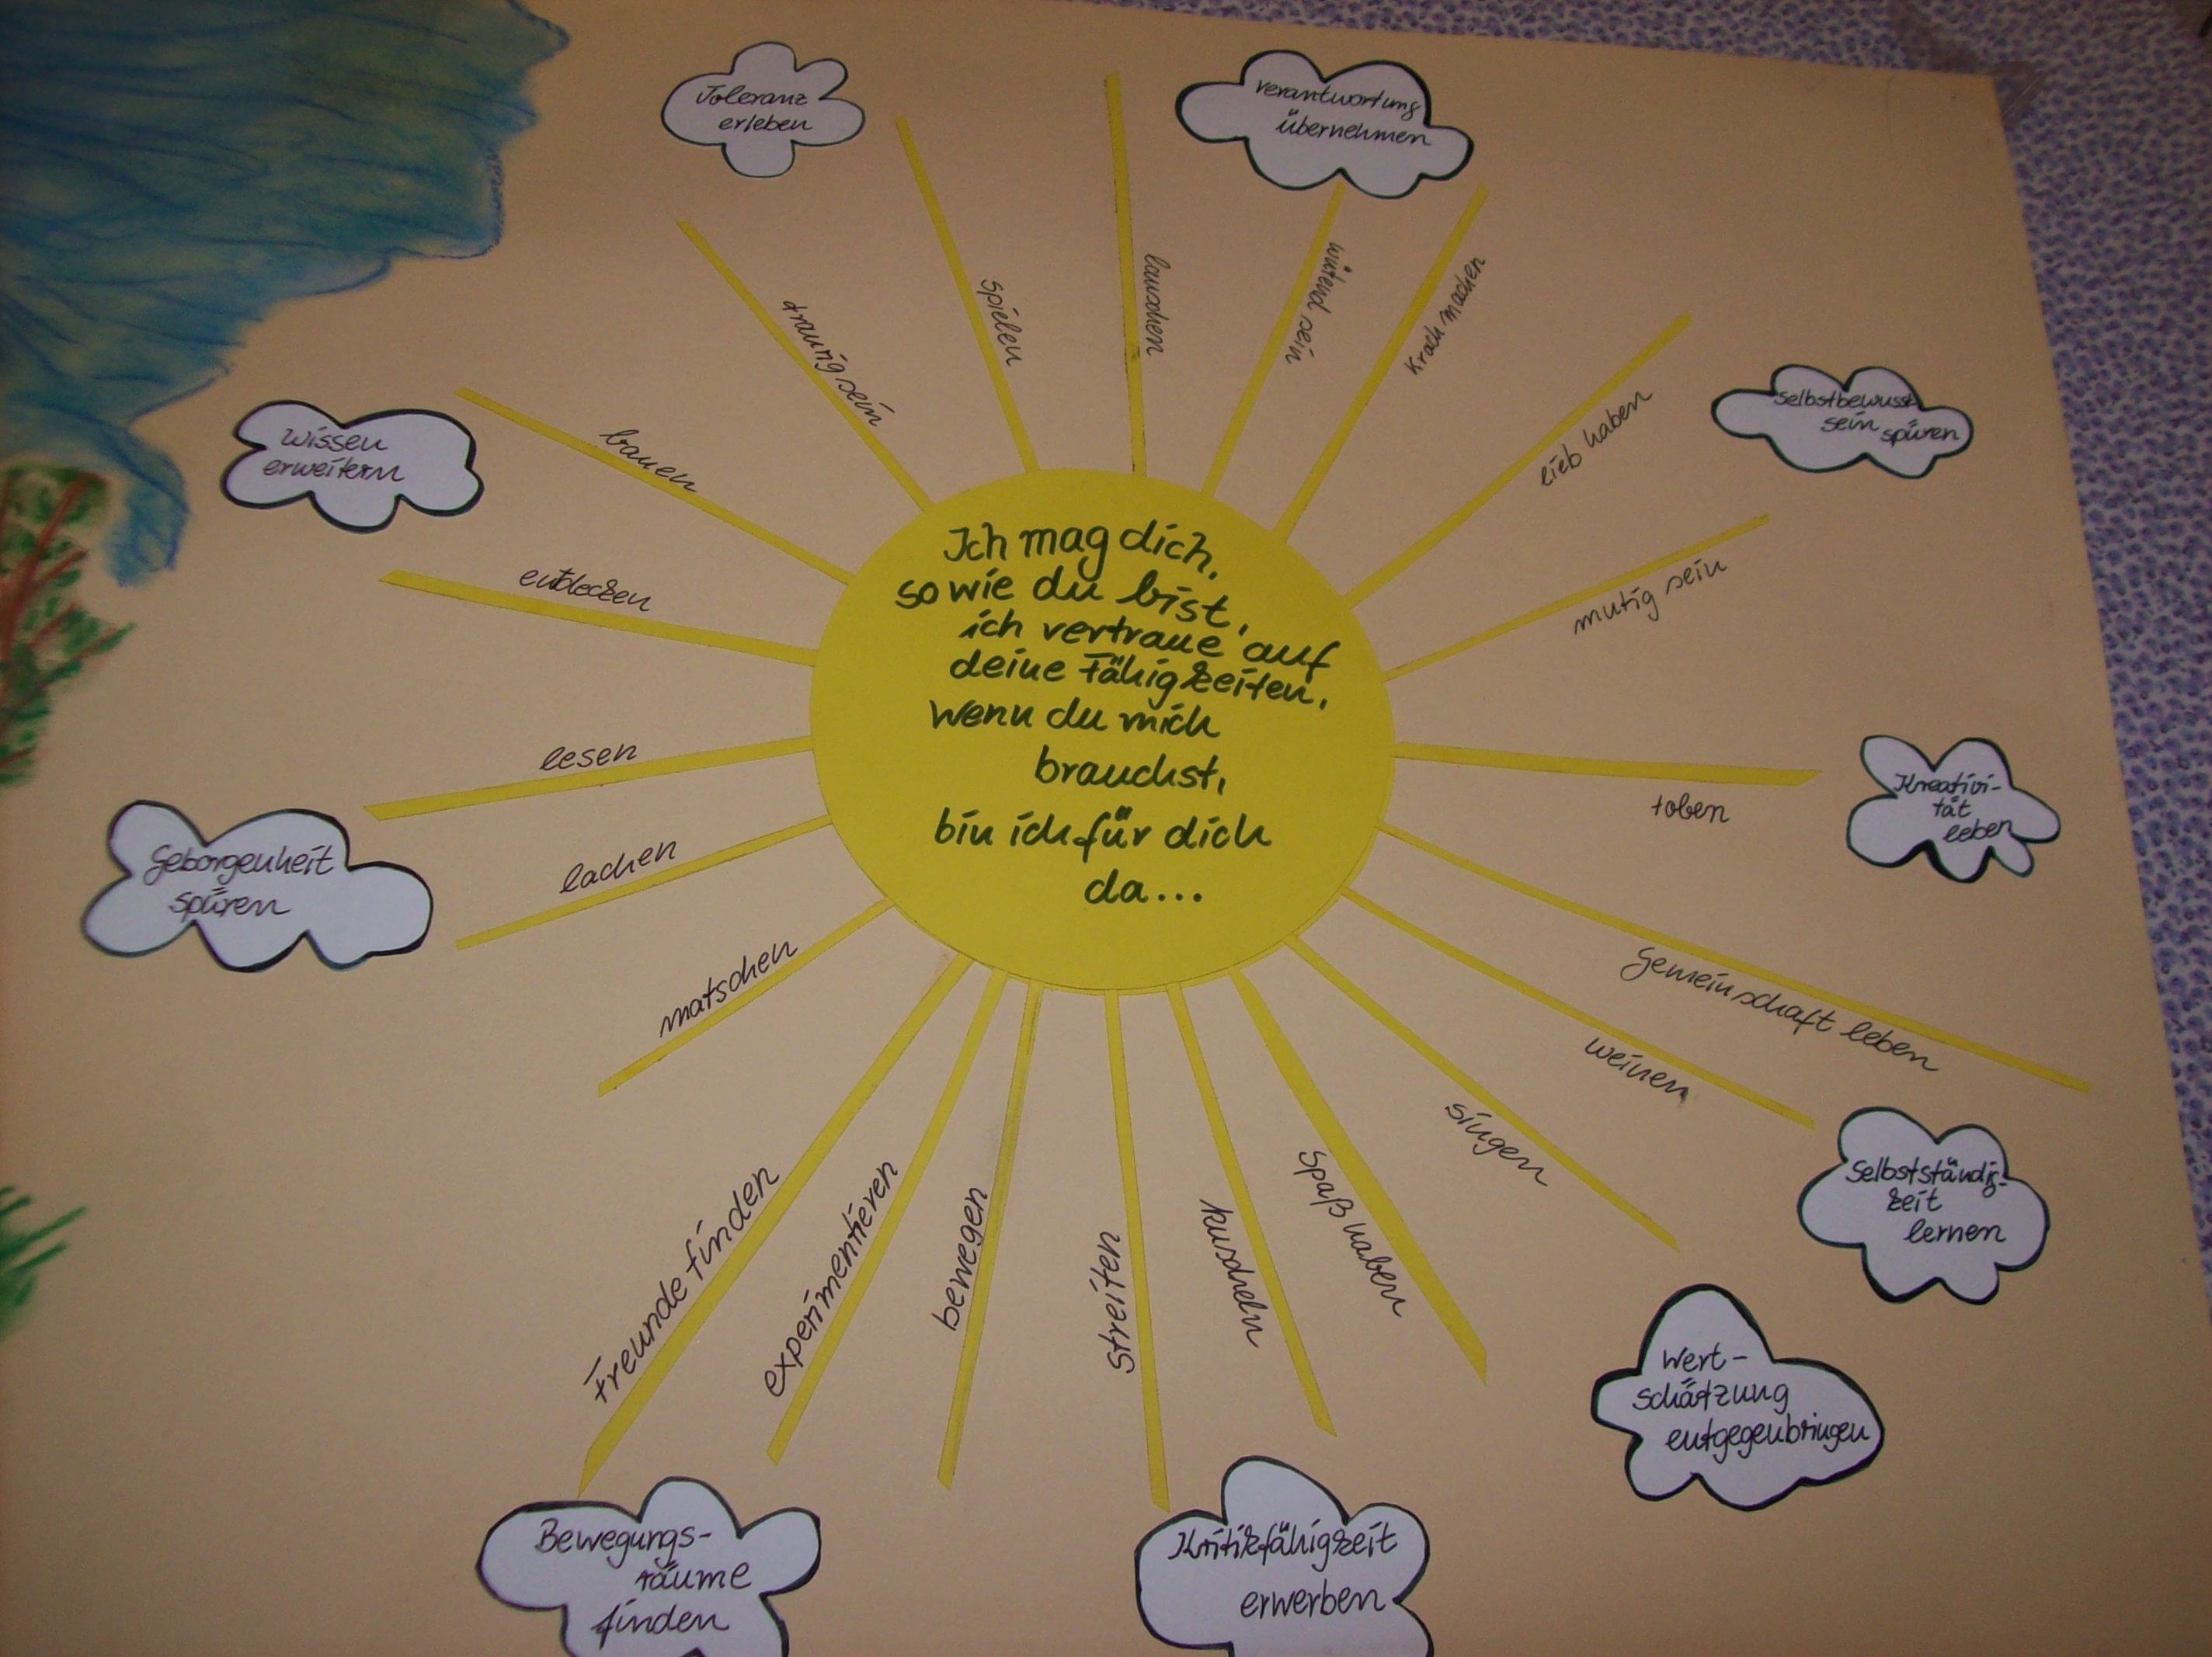 Toleranz
erleben
Verantwortung
übernehmen
Selbstbewusst
sein spüren
Kreativi-
tät
leben
Selbstständig-
keit
lernen
Wert-
schätzung
entgegenbringen
Kritikfähigkeit
erwerben
Bewegungs-
räume
finden
Geborgenheit
spüren
Wissen
erweitern
traurig sein
spielen
lauschen
wütend sein
Krach machen
lieb haben
mutig sein
toben
Gemeinschaft leben
weinen
singen
Spaß haben
kuscheln
streiten
bewegen
experimentieren
Freunde finden
matschen
lachen
lesen
entdecken
bauen
Ich mag dich,
so wie du bist,
ich vertraue auf
deine Fähigkeiten,
wenn du mich
brauchst,
bin ich für dich
da...